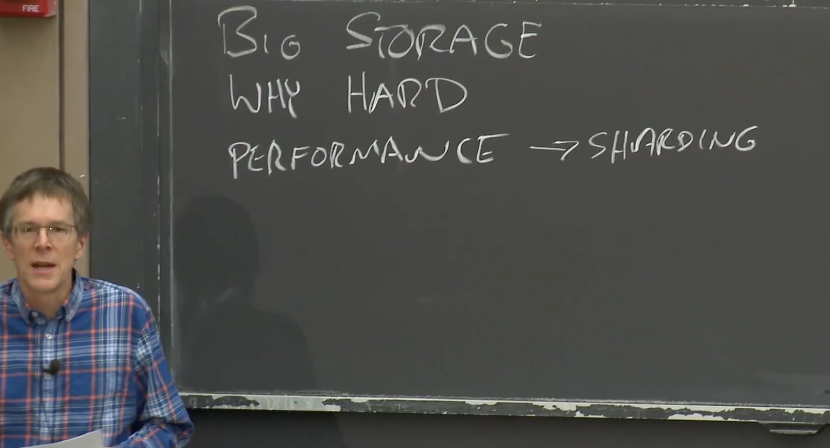 FIRE
BIG STORAGE
WHY HARD
PERFORMANCE → SHARDING